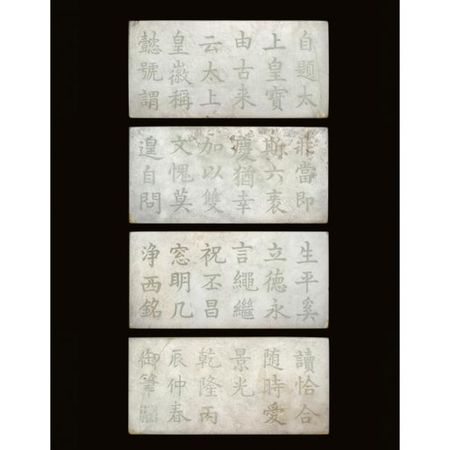 自題太
上皇寶
由古来
云太上
皇徽稱
懿號謂
非當即
斯六袠
慶猶幸
加以雙
文愧莫
遑自問
生平奚
立德永
言繩繼
祝丕昌
窓明几
浄西銘
讀恰合
随時愛
景光
乾隆丙
辰仲春
御筆